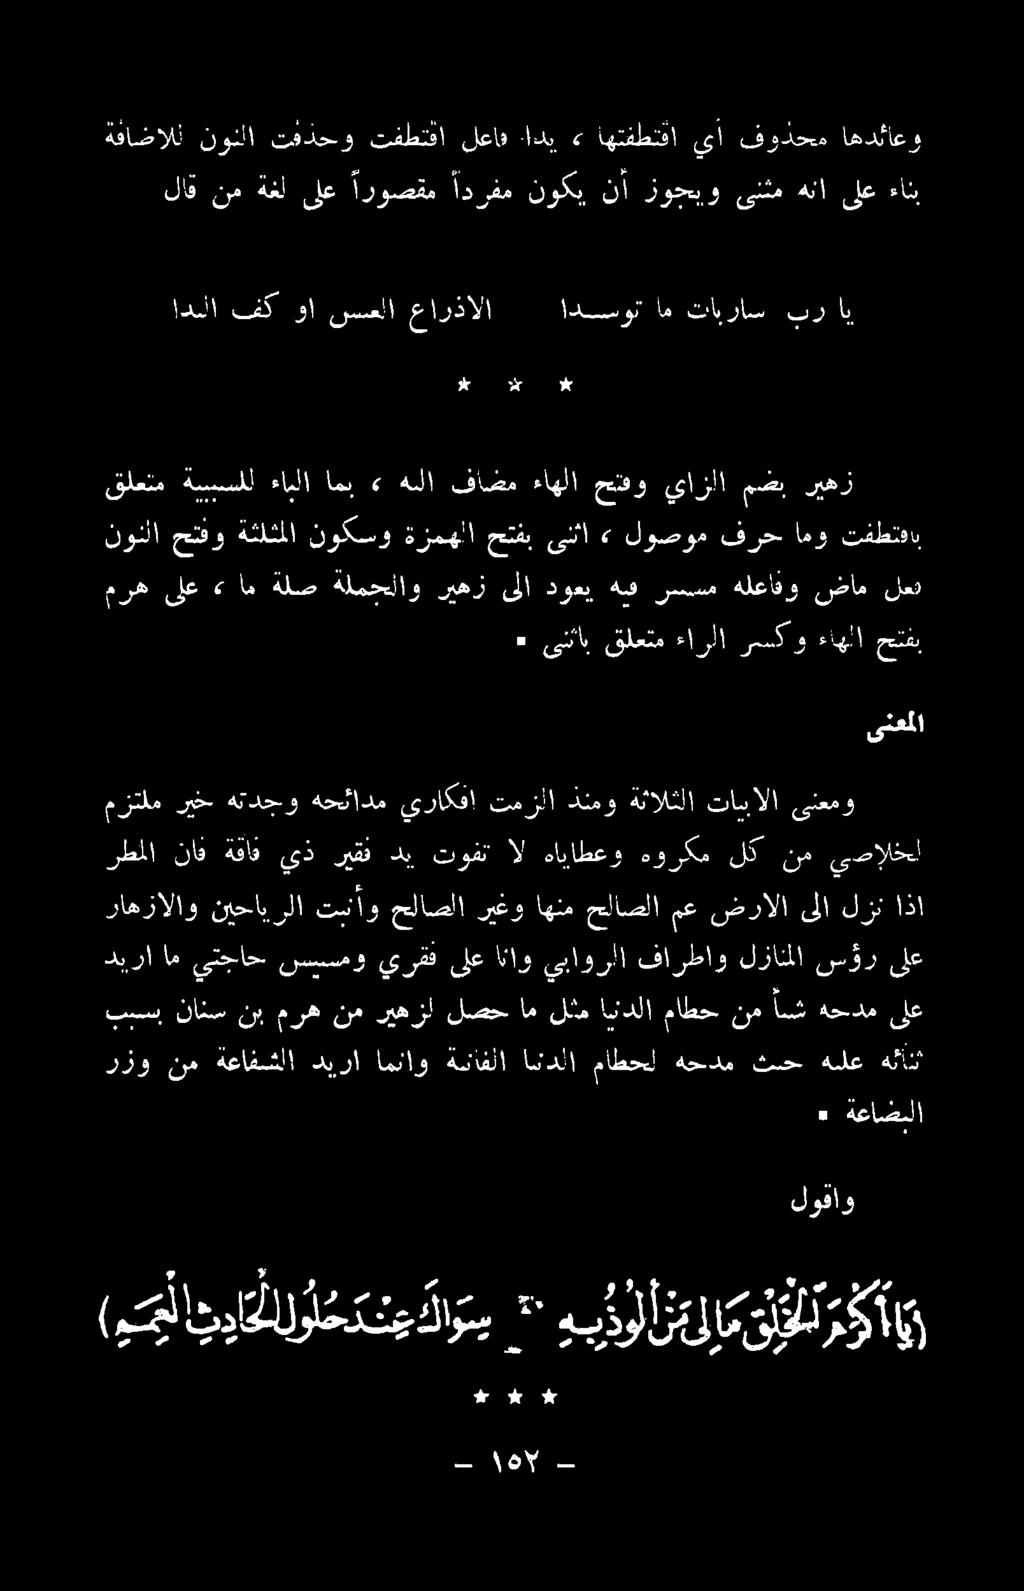 وعائدها محذوف أي اقتطفتها ، يدا فاعل اقتطفت وحذفت النون للاضافة
بناء على انه مثنى ويجوز أن يكون مفرداً مقصوراً على لغة من قال
يا رب سار بات ما توسدا الا ذراع العنس او كف اليدا
* * *
زهير بضم الزاي وفتح الهاء مضاف اليه ، بما الباء للسببية متعلق
باقتطفت وما حرف موصول ، اثنى بفتح الهمزة وسكون المثلثة وفتح النون
فعل ماض وفاعله مستتر فيه يعود الى زهير والجملة صلة ما ، على هرم
بفتح الهاء وكسر الراء متعلق باثنى .
المعنى
ومعنى الابيات الثلاثة ومنذ الزمت افكاري مدائحه وجدته خير ملتزم
لخلاصي من كل مكروه وعطاياه لا تفوت يد فقير ذي فاقة فان المطر
اذا نزل الى الارض عم الصالح منها وغير الصالح وأنبت الرياحين والازهار
على رؤس المنازل واطراف الروابي وانا على فقري ومسيس حاجتي ما اريد
على مدحه شيأً من حطام الدنيا مثل ما حصل لزهير من هرم بن سنان بسبب
ثنائه عليه حيث مدحه لحطام الدنيا الفانية وانما اريد الشفاعة من وزر
البضاعة .
واقول
(يَا أَكْرَمَ الْخَلْقِ مَالِي مَنْ أَلُوذُ بِهِ * سِوَاكَ عِنْدَ حُلُولِ الْحَادِثِ الْعَمِمِ)
* * *
– ١٥٢ –